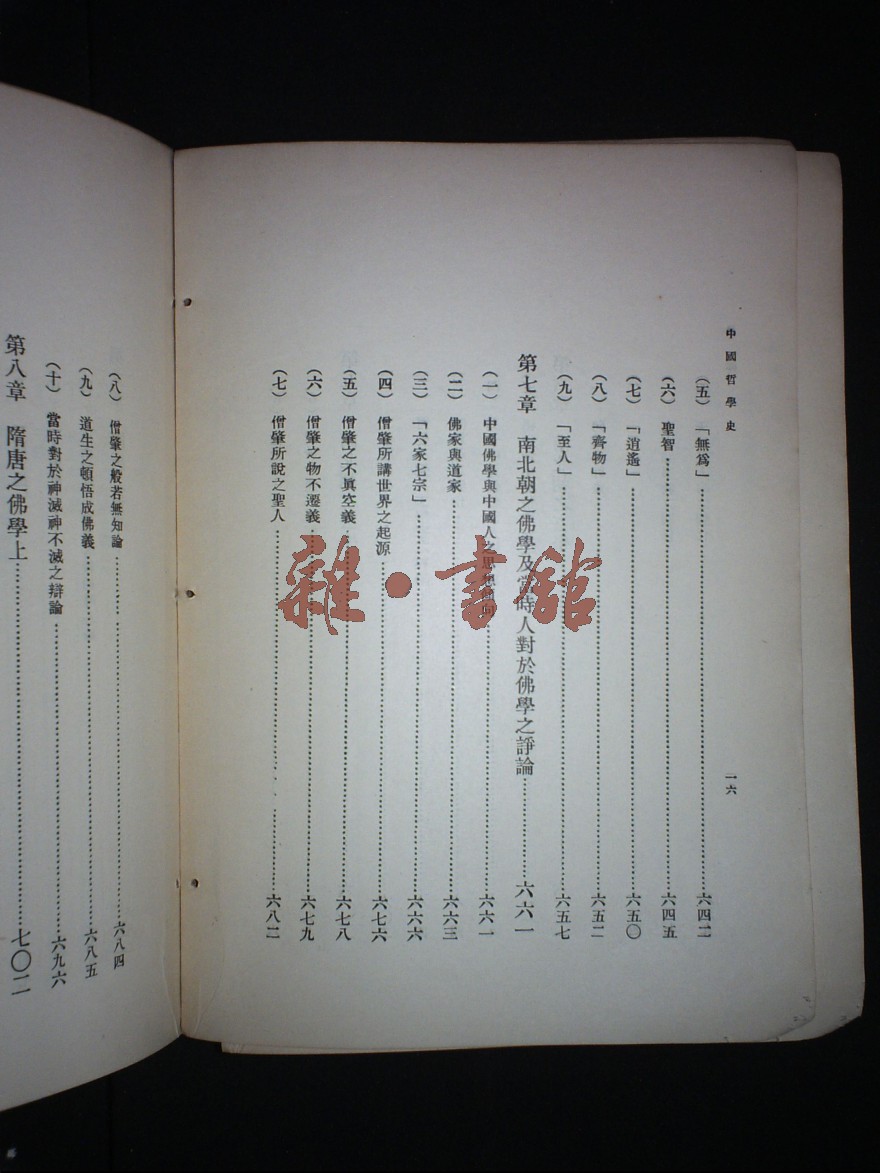 中國哲學史
一六
（五）「無爲」……六四二
（六）聖智……六四五
（七）「逍遙」……六五〇
（八）「齊物」……六五二
（九）「至人」……六五七
第七章 南北朝之佛學及當時人對於佛學之諍論……六六一
（一）中國佛學與中國人之思想傾向……六六一
（二）佛家與道家……六六三
（三）「六家七宗」……六六六
（四）僧肇所講世界之起源……六七六
（五）僧肇之不眞空義……六七八
（六）僧肇之物不遷義……六七九
（七）僧肇所說之聖人……六八二
（八）僧肇之般若無知論……六八四
（九）道生之頓悟成佛義……六八五
（十）當時對於神滅神不滅之辯論……六九六
第八章 隋唐之佛學上……七〇二
雜·書館